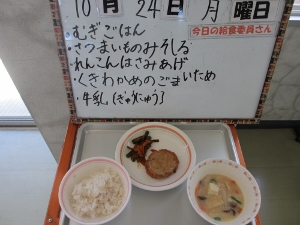 10 月 24 日 月 曜日
今日の給食委員さん
・むぎごはん
・さつまいものみそしる
・れんこんはさみあげ
・くきわかめのごまいため
・牛乳(ぎゅうにゅう)